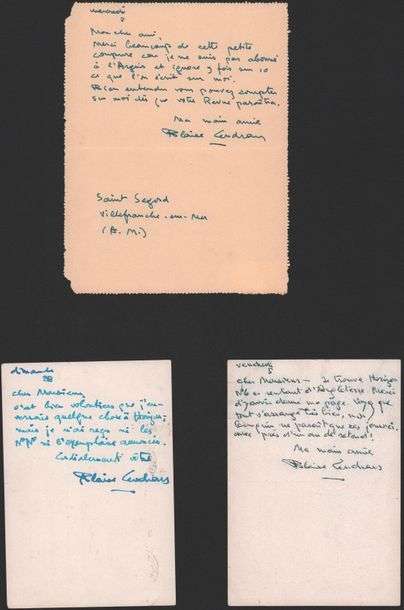 mercredi
Mon cher ami.
Merci beaucoup de cette petite
coupure car je ne suis pas abonné
à l'Argus et ignore 9 fois sur 10
ce que l'on écrit sur moi.
Bien entendu vous pouvez compter
sur moi dès que votre Revue paraîtra.
Ma main amie
Blaise Cendrars
Saint Segond
Villefranche-sur-Mer
(A. M.)
dimanche
cher Monsieur
c'est bien volontiers que j'en-
verrais quelque chose à Horizon,
mais je n'ai reçu ni les
Nos ni l'exemplaire annoncés.
Cordialement vôtre
Blaise Cendrars
vendredi
Cher Monsieur - Je trouve Horizon
No 6 en rentrant d'Angleterre. Merci
d'y avoir donné une page
tout s'arrange très bien
ne paraît que ces jours-ci,
avec près d'un an de retard!
Ma main amie
Blaise Cendrars